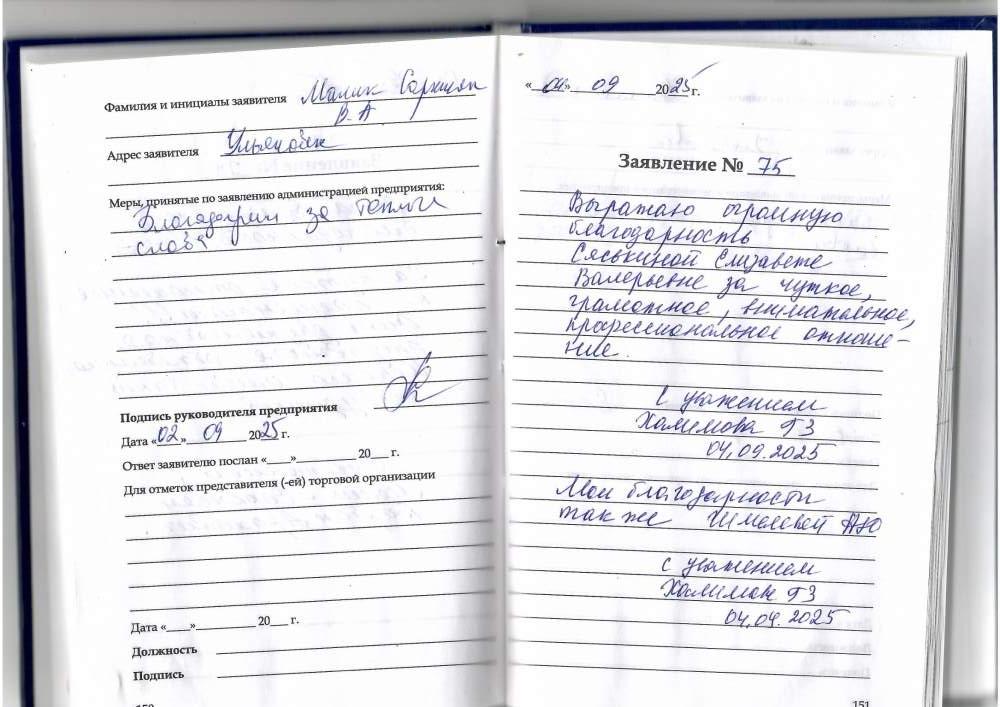 Фамилия и инициалы заявителя Малик
В.А
Адрес заявителя Ульяновск
Меры, принятые по заявлению администрацией предприятия:
Благодарим за теплые
слова
Подпись руководителя предприятия
Дата «02» 09 2025 г.
Ответ заявителю послан «___»__________ 20___ г.
Для отметок представителя (-ей) торговой организации
Дата «___»__________ 20___ г.
Должность
Подпись
«04» 09 2025 г.
Заявление № 75
Выражаю огромную
благодарность
Сяськиной Елизавете
Валерьевне за чуткое,
грамотное, внимательное,
профессиональное отноше-
ние.
С уважением
Халимова ГЗ
04.09.2025
Мои благодарности
также Шмелевой АЮ
с уважением
Халимова ГЗ
04.09.2025
151